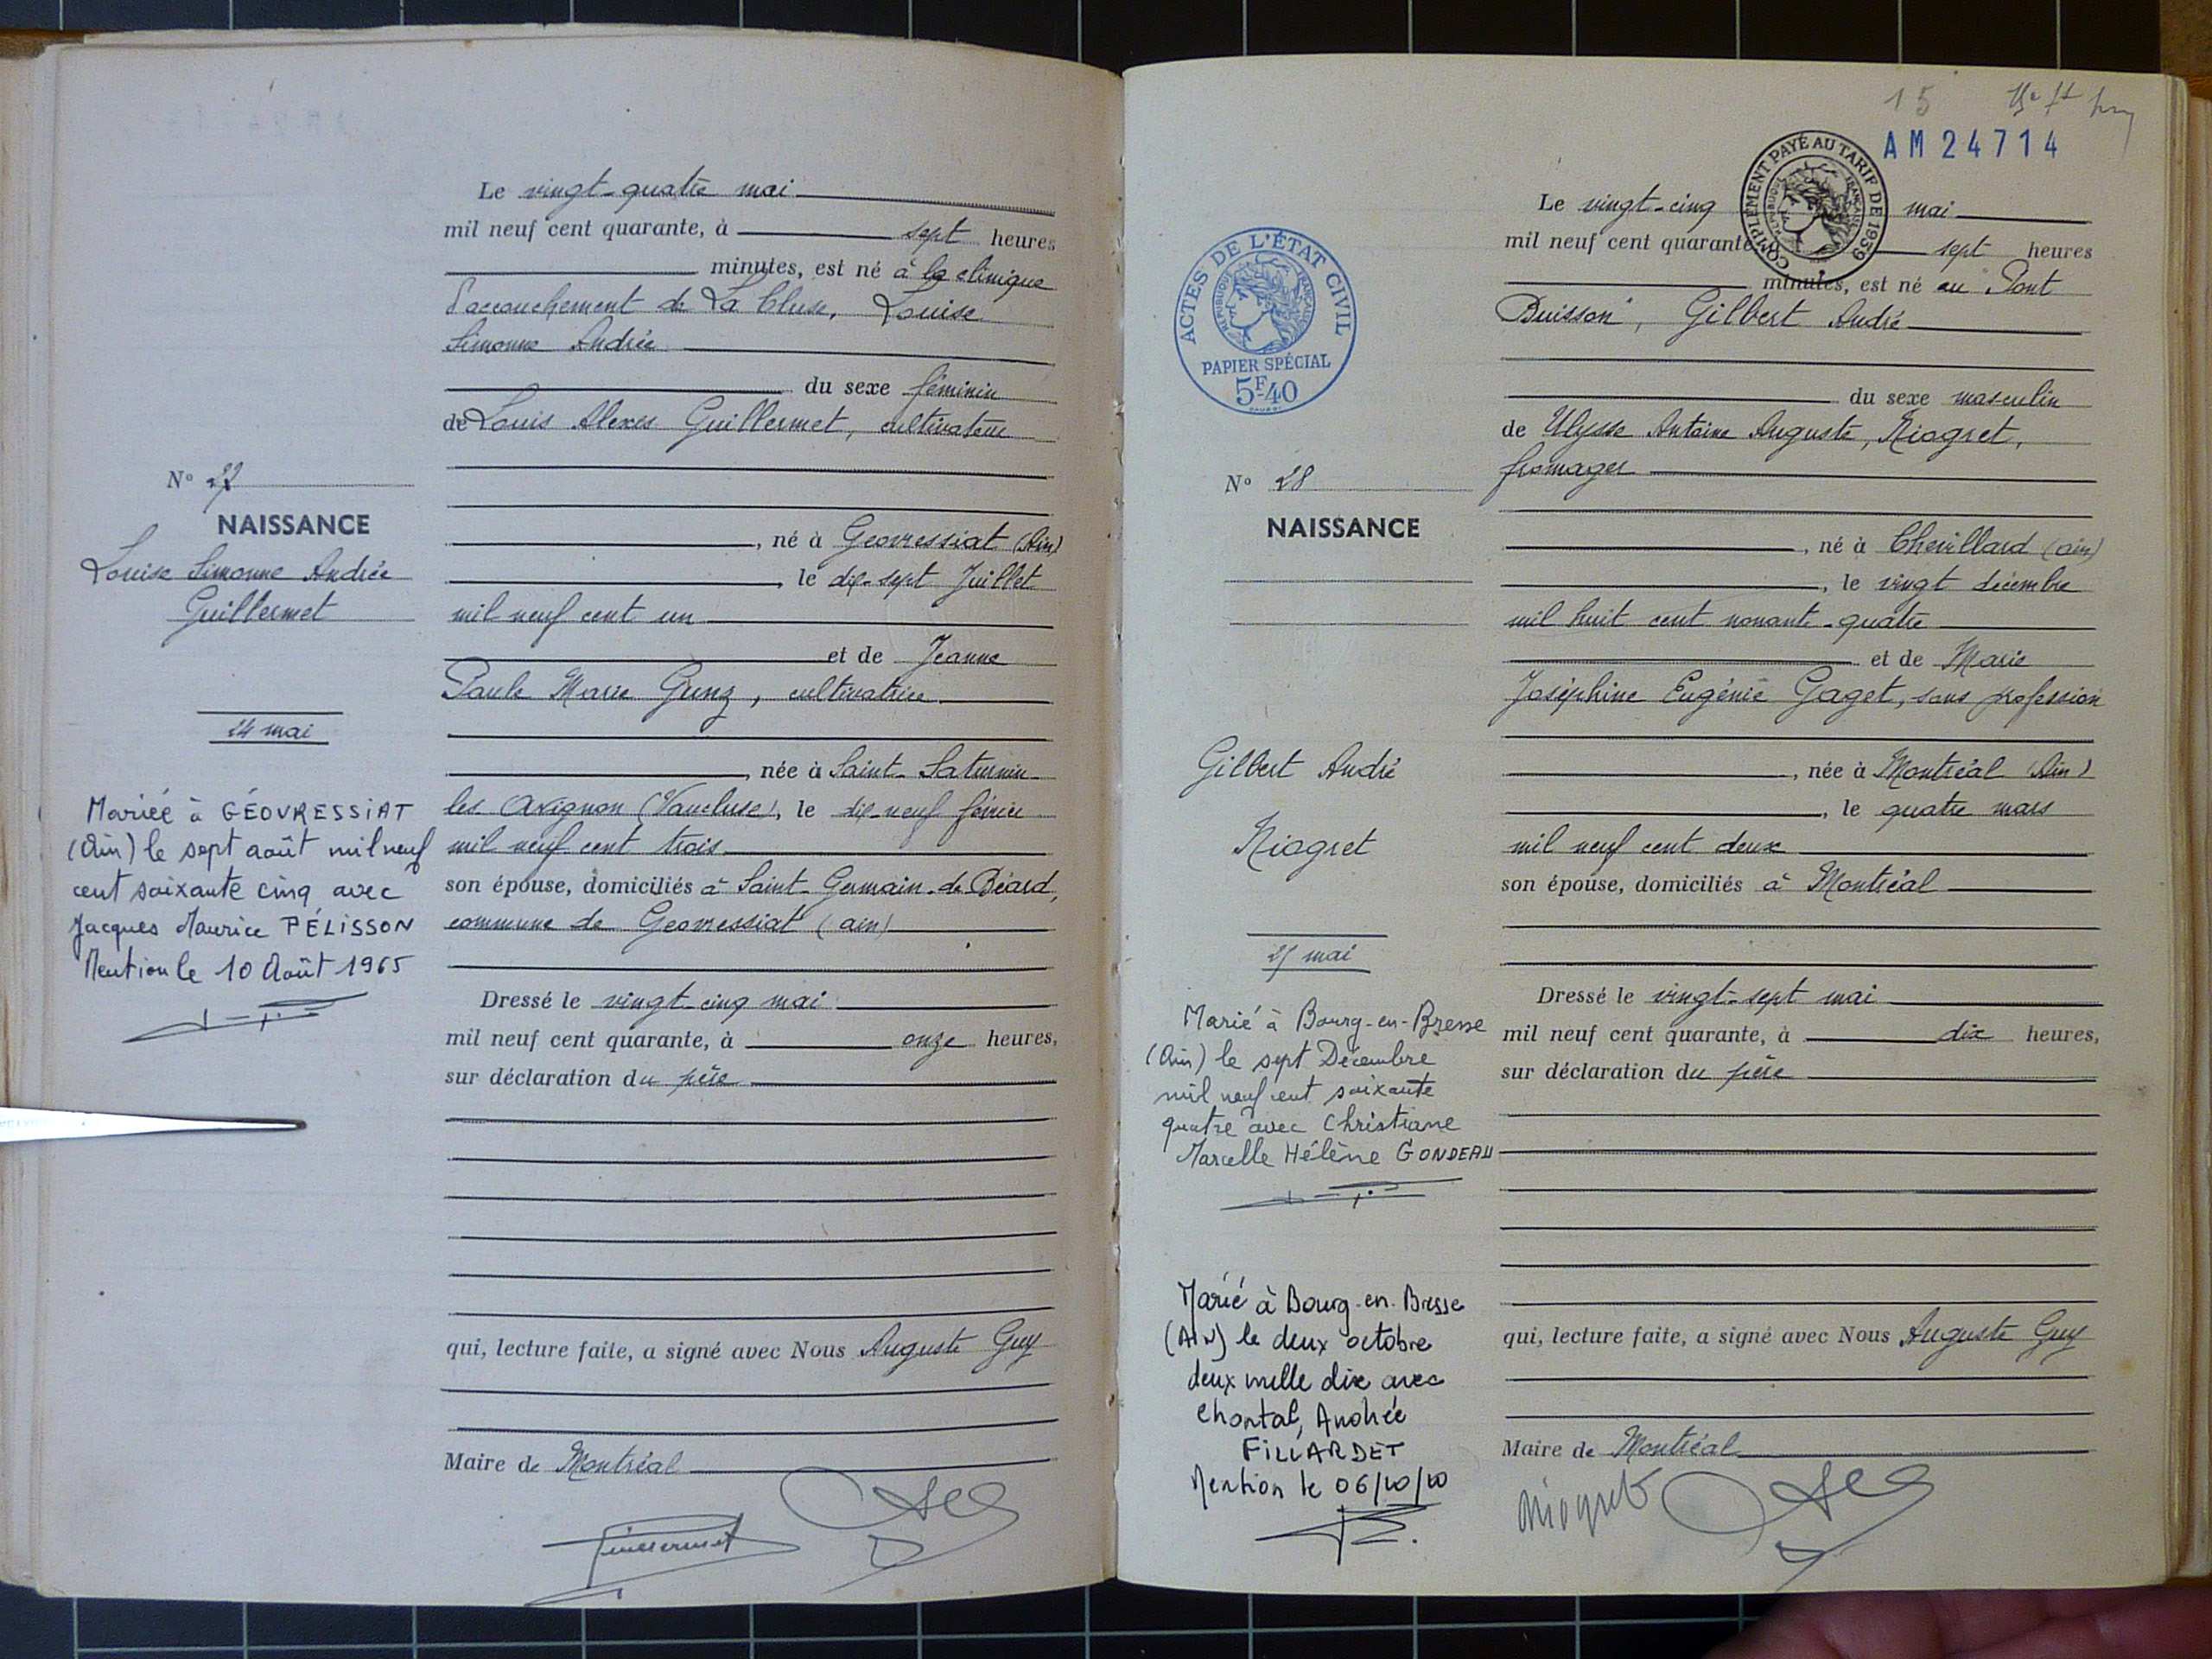 Le vingt-quatre mai
mil neuf cent quarante, à sept heures
minutes, est né à la clinique
d'accouchement de La Cluse, Louise
Simonne Andrée
du sexe féminin
de Louis Alexis Guillermet, cultivateur
N° 27
NAISSANCE
Louise Simonne Andrée
Guillermet
24 mai
Mariée à GÉOVRESSIAT
(Ain) le sept août mil neuf
cent soixante cinq avec
Jacques Maurice PÉLISSON
Mention le 10 Août 1965
, né à Geovressiat (Ain)
, le dix-sept Juillet
mil neuf cent un
et de Jeanne
Paule Marie Gunz, cultivatrice
, née à Saint-Saturnin-
les Avignon (Vaucluse), le dix-neuf février
mil neuf cent trois
son épouse, domiciliés à Saint-Germain-de-Béard,
commune de Geovressiat (ain)
Dressé le vingt-cinq mai
mil neuf cent quarante, à onze heures,
sur déclaration du père
qui, lecture faite, a signé avec Nous Auguste Guy
Maire de Montréal
Guillermet
15
AM24714
COMPLÉMENT PAYÉ AU TARIF DE 1939
RÉPUBLIQUE FRANÇAISE
ACTES DE L'ÉTAT CIVIL
RÉPUBLIQUE FRANÇAISE
PAPIER SPÉCIAL
5F40
Le vingt-cinq mai
mil neuf cent quarante, à sept heures
minutes, est né au "Pont
Buisson", Gilbert André
du sexe masculin
de Ulysse Antoine Auguste, Niogret,
fromager
N° 28
NAISSANCE
Gilbert André
Niogret
25 mai
Marié à Bourg-en-Bresse
(Ain) le sept Décembre
mil neuf cent soixante
quatre avec Christiane
Marcelle Hélène GONDEAU
Marié à Bourg-en-Bresse
(AIN) le deux octobre
deux mille dix avec
Chantal, Andrée
FILLARDET
Mention le 06/10/10
, né à Chevillard (ain)
, le vingt décembre
mil huit cent nonante-quatre
et de Marie
Joséphine Eugénie Gaget, sans profession
, née à Montréal (Ain)
, le quatre mars
mil neuf cent deux
son épouse, domiciliés à Montréal
Dressé le vingt-sept mai
mil neuf cent quarante, à dix heures,
sur déclaration du père
qui, lecture faite, a signé avec Nous Auguste Guy
Maire de Montréal
Niogret